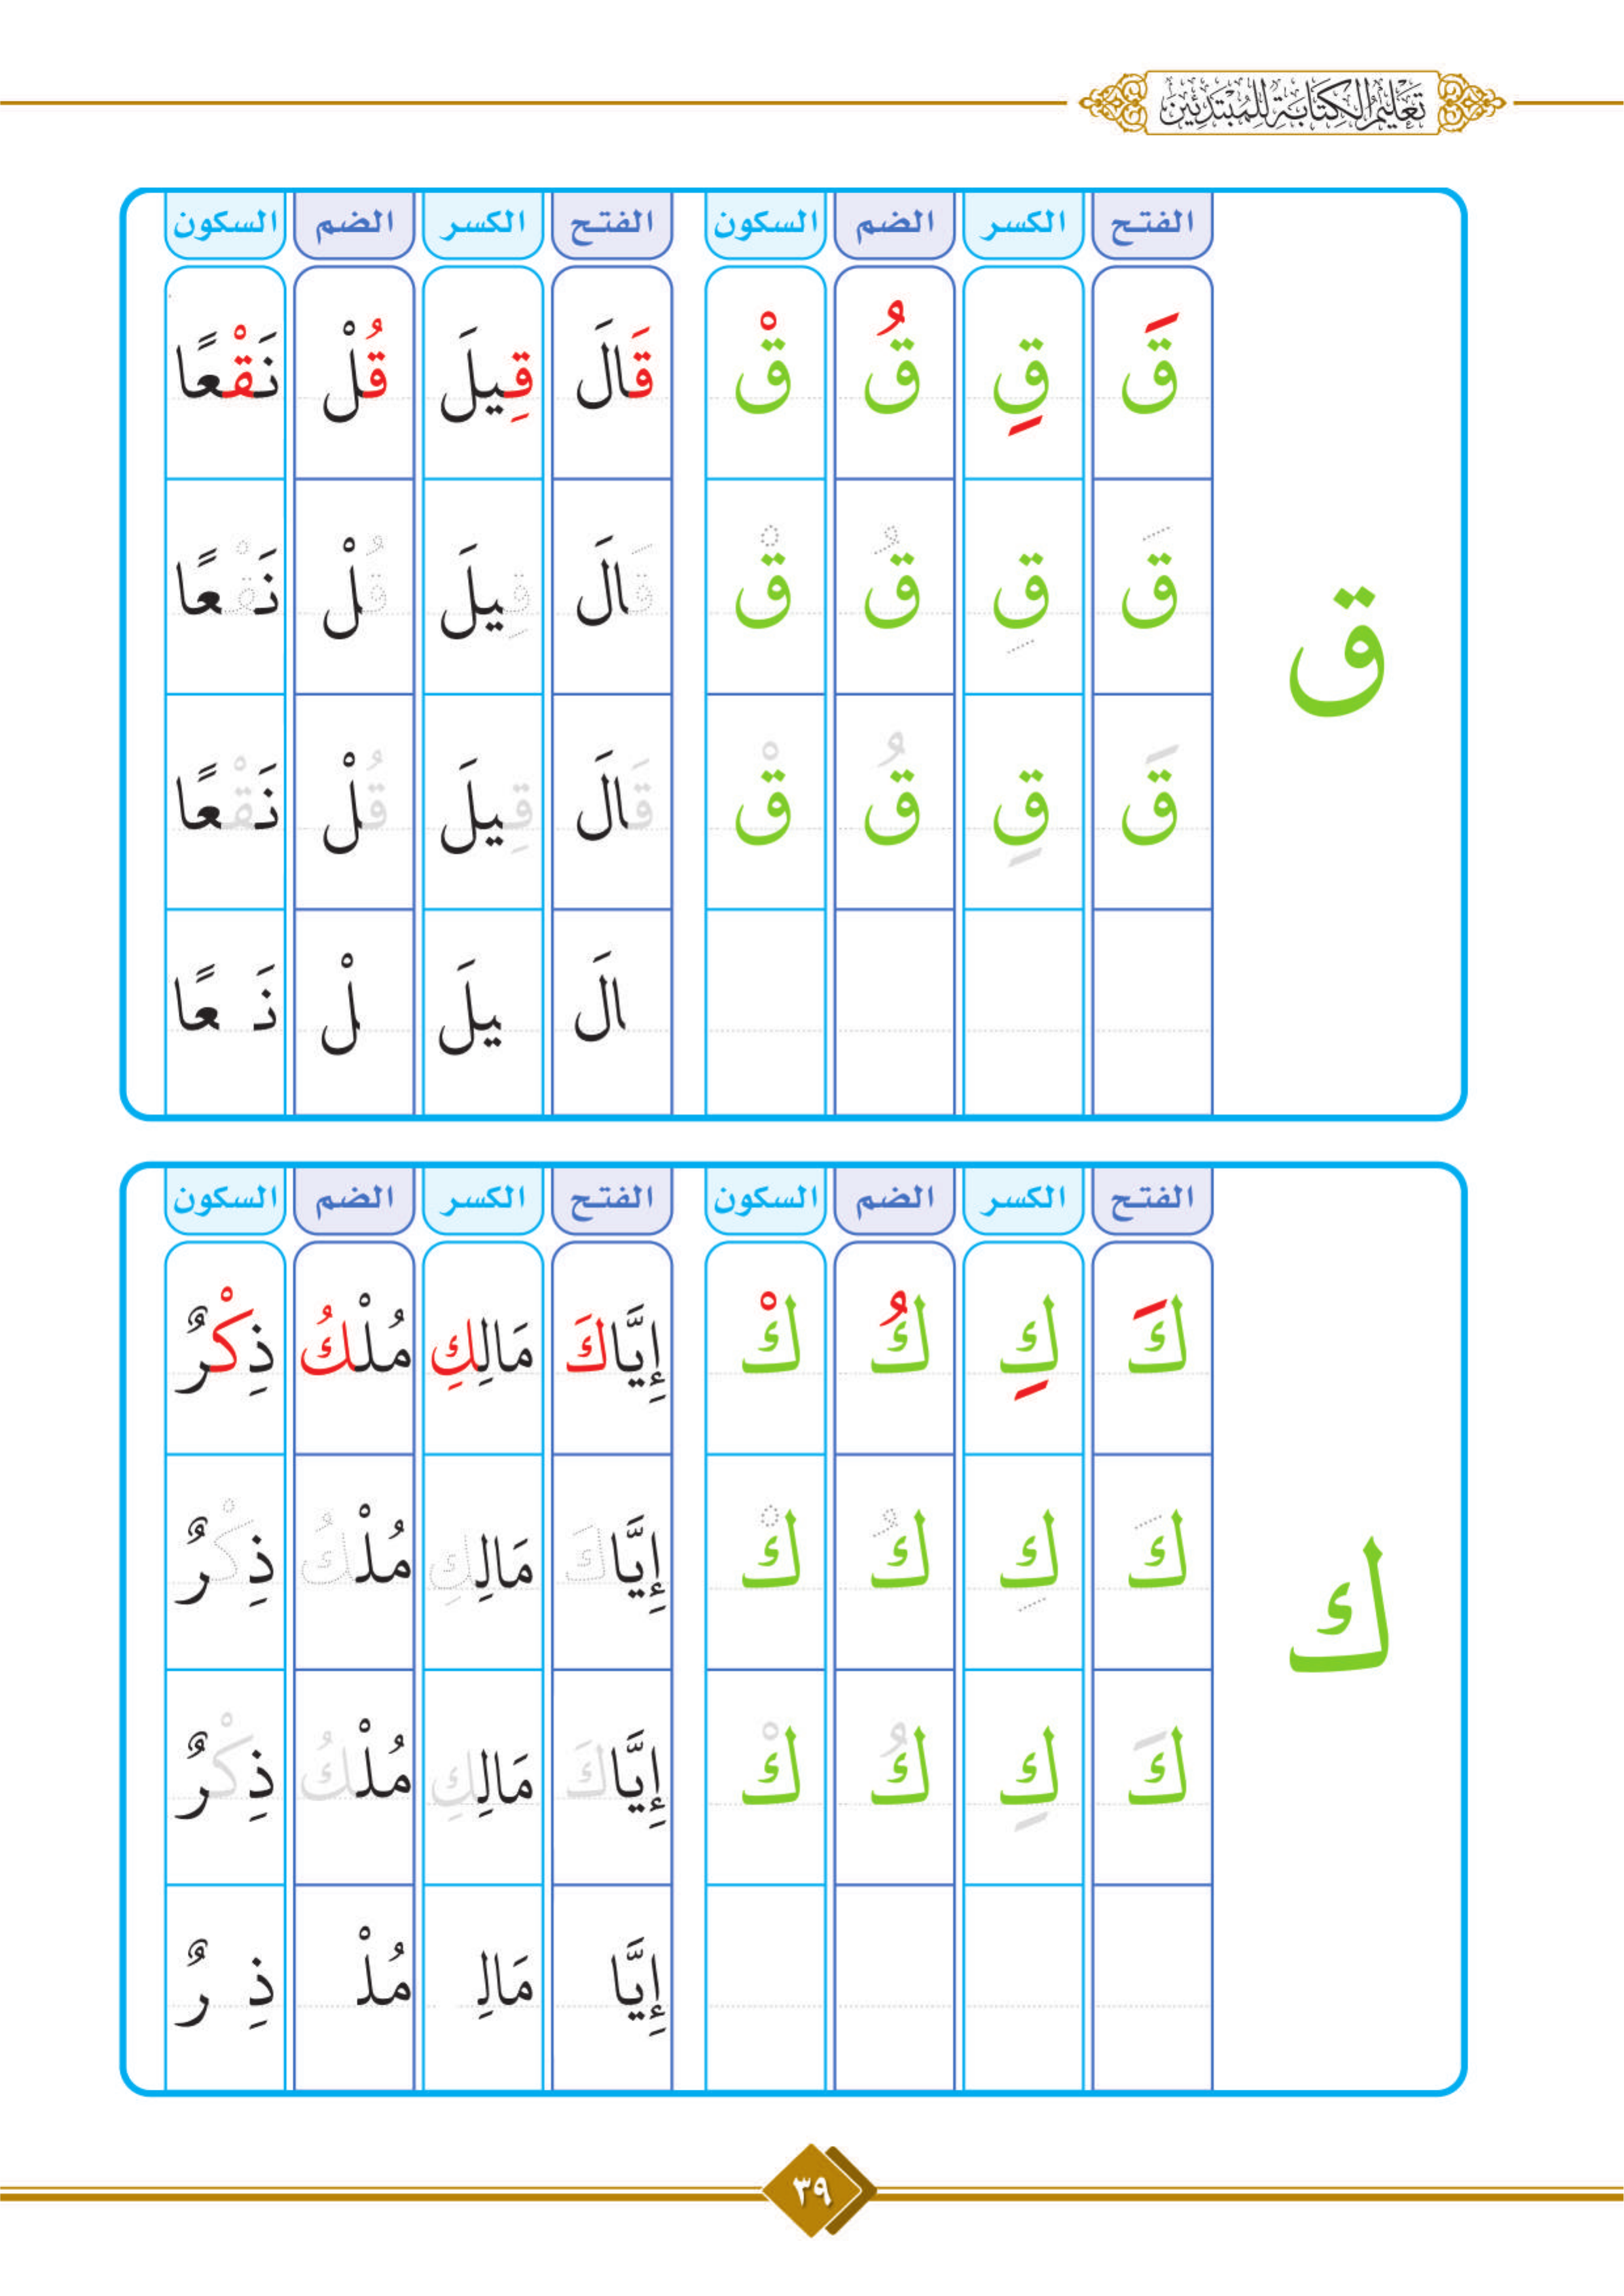 تَعْلِيمُ الْكِتَابَةِ لِلْمُبْتَدِئِينَ
الفتح الكسر الضم السكون الفتح الكسر الضم السكون
قَ قِ قُ قْ قَالَ قِيلَ قُلْ نَقْعًا
ق
قَ قِ قُ قْ قَالَ قِيلَ قُلْ نَقْعًا
قَ قِ قُ قْ قَالَ قِيلَ قُلْ نَقْعًا
الَ يلَ لْ نَ عًا
الفتح الكسر الضم السكون الفتح الكسر الضم السكون
كَ كِ كُ كْ إِيَّاكَ مَالِكِ مُلْكُ ذِكْرٌ
ك
كَ كِ كُ كْ إِيَّاكَ مَالِكِ مُلْكُ ذِكْرٌ
كَ كِ كُ كْ إِيَّاكَ مَالِكِ مُلْكُ ذِكْرٌ
إِيَّا مَالِ مُلْ ذِ رٌ
٣٩